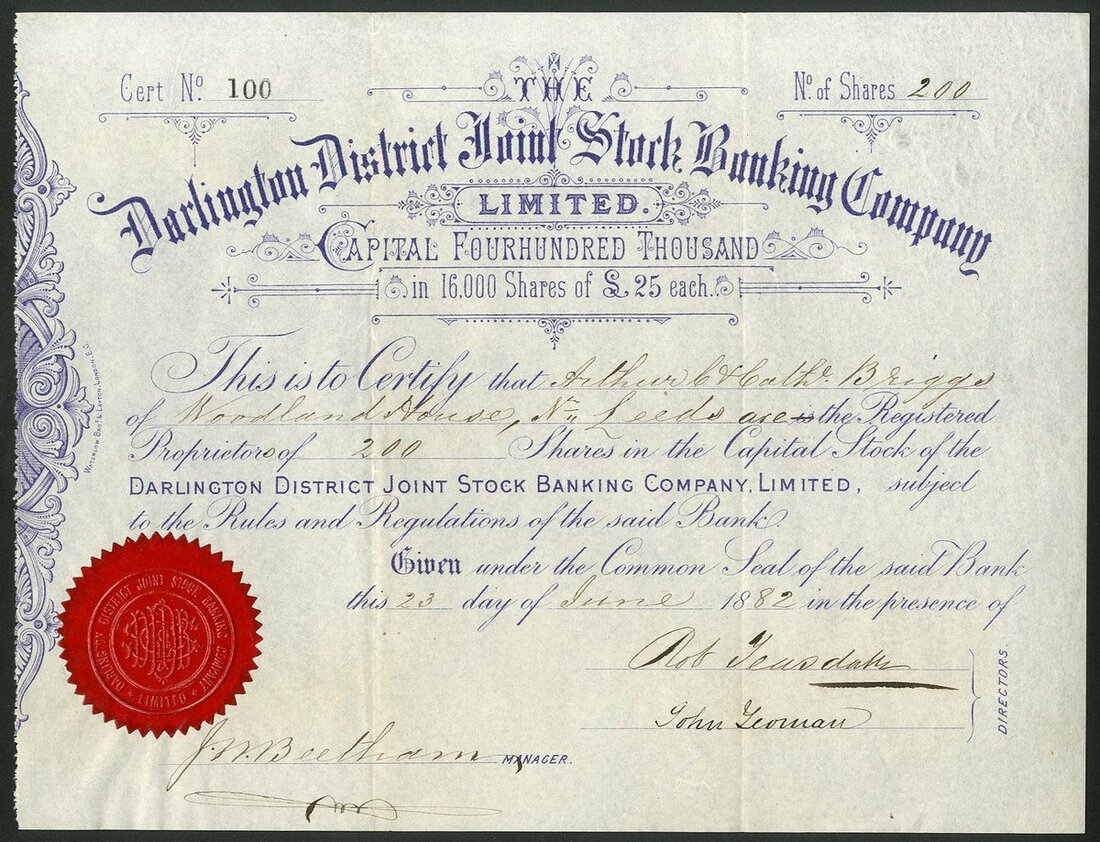 Cert Nº. 100
Nº. of Shares 200
THE
Darlington District Joint Stock Banking Company
LIMITED.
CAPITAL FOURHUNDRED THOUSAND
in 16,000 Shares of £25 each.
This is to Certify that Arthur C & Cathe. Briggs
of Woodland House, Nr. Leeds are is the Registered
Proprietors of 200 Shares in the Capital Stock of the
DARLINGTON DISTRICT JOINT STOCK BANKING COMPANY, LIMITED, subject
to the Rules and Regulations of the said Bank.
Given under the Common Seal of the said Bank
this 23 day of June 1882 in the presence of
Rob Teasdale
John Yeoman
DIRECTORS.
J. W. Beetham MANAGER.
WATERLOW BROS & LAYTON, LONDON E.C.
DARLINGTON DISTRICT JOINT STOCK BANKING COMPANY
LIMITED